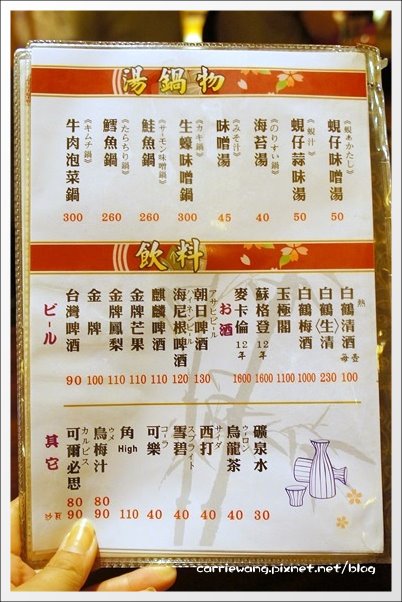 湯鍋物
《蜆あかだし》
蜆仔味噌湯
50
《蜆汁》
蜆仔蒜味湯
50
《のりすい鍋》
海苔湯
40
《みそ汁》
味噌湯
45
《カキ鍋》
生蠔味噌鍋
300
《サーモン味噌鍋》
鮭魚鍋
260
《たらちり鍋》
鱈魚鍋
260
《キムチ鍋》
牛肉泡菜鍋
300
飲料
お酒
熱
白鶴清酒
每壺
100
白鶴〈生〉清
230
白鶴梅酒
1000
玉極閣
1100
蘇格登12年
1600
麥卡倫12年
1600
ビール
アサヒビール
朝日啤酒
130
ハイネンビール
海尼根啤酒
120
麒麟啤酒
110
金牌芒果
110
金牌鳳梨
110
金牌
100
台灣啤酒
90
其它
礦泉水
30
ウーロン
烏龍茶
40
サイダ
西打
40
スプライト
雪碧
40
コーラ
可樂
40
角High
110
ウメ
烏梅汁
80
90
カルピス
可爾必思
80
90
carriewang.pixnet.net/blog